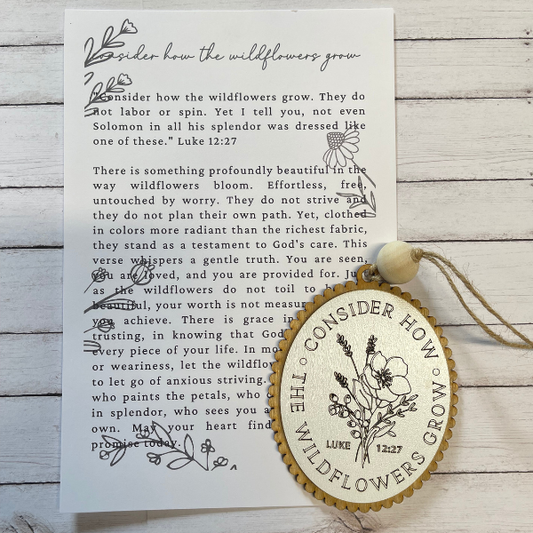 Consider how the wildflowers grow
"Consider how the wildflowers grow. They do
not labor or spin. Yet I tell you, not even
Solomon in all his splendor was dressed like
one of these." Luke 12:27
There is something profoundly beautiful in the
way wildflowers bloom. Effortless, free,
untouched by worry. They do not strive and
they do not plan their own path. Yet, clothed
in colors more radiant than the richest fabric,
they stand as a testament to God's care. This
verse whispers a gentle truth. You are seen,
you are loved, and you are provided for. Just
as the wildflowers do not toil to b
beautiful, your worth is not measur
you achieve. There is grace in
trusting, in knowing that God
every piece of your life. In mo
or weariness, let the wildflo
to let go of anxious striving.
who paints the petals, who
in splendor, who sees you a
own. May your heart find
promise today.
CONSIDER HOW
THE WILDFLOWERS GROW
LUKE 12:27